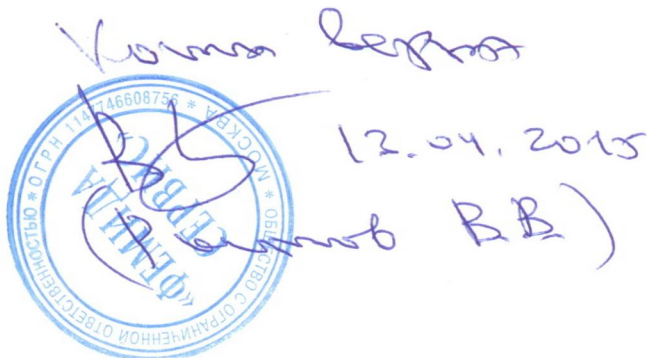 Копия верна
12.04.2015
В.В.)
ОБЩЕСТВО С ОГРАНИЧЕННОЙ ОТВЕТСТВЕННОСТЬЮ * ОГРН 1147746608756 * МОСКВА *
«ФЕМИДА
СЕРВИС»